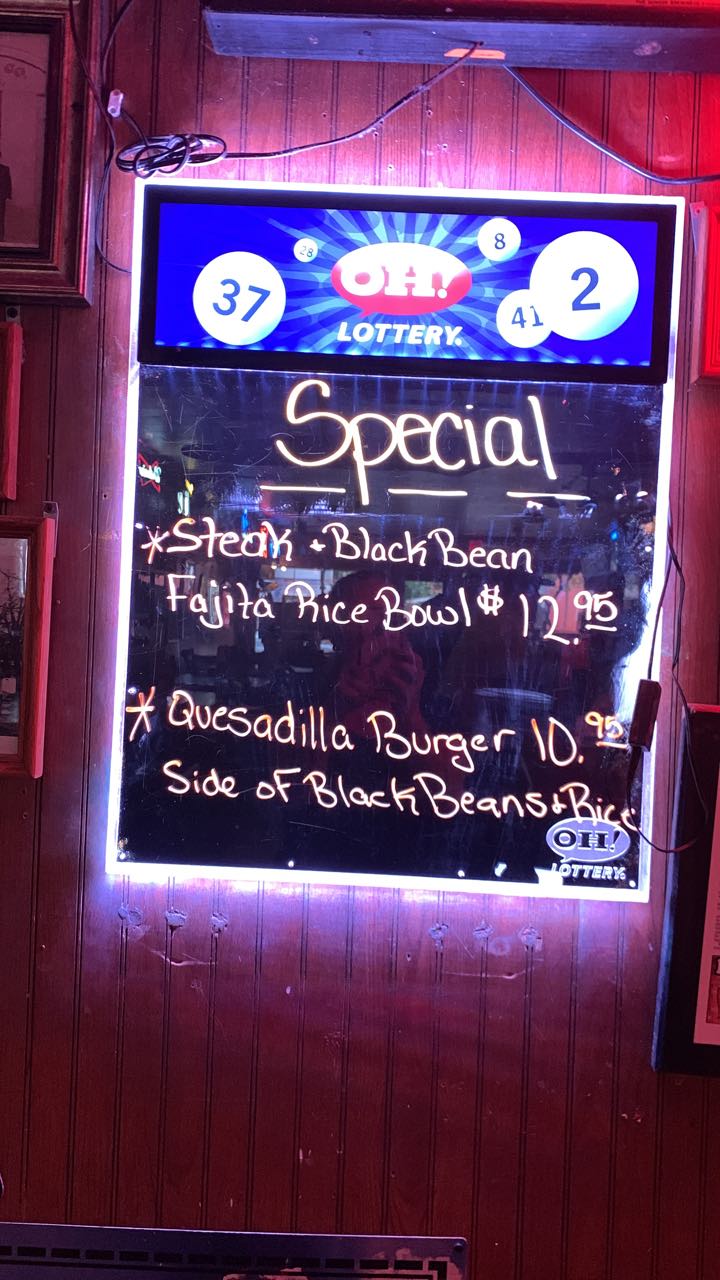 28
8
37
OH!
41
2
LOTTERY.
Special
*Steak + Black Bean
Fajita Rice Bowl $ 12.95
* Quesadilla Burger 10.95
Side of Black Beans + Rice
OH!
LOTTERY.